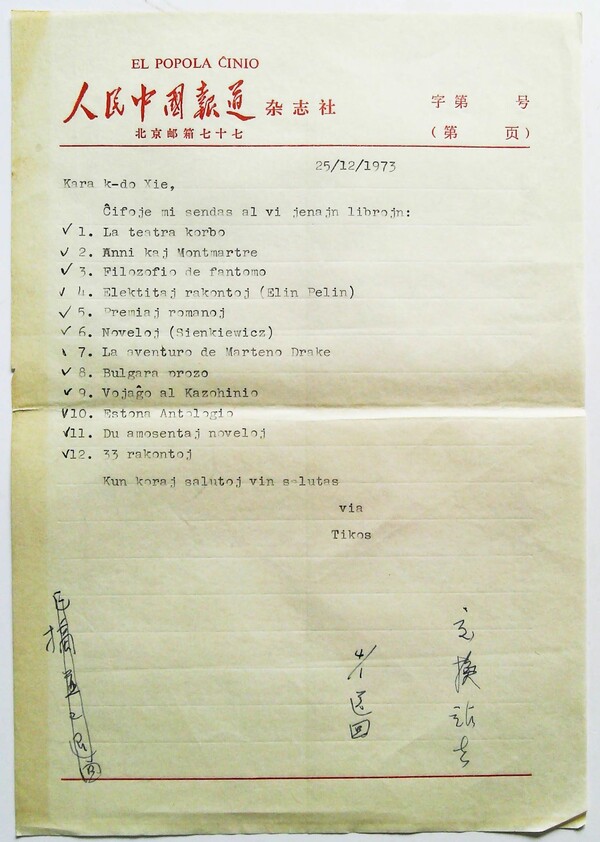 EL POPOLA ĈINIO
人民中國報道 杂志社
字第 号
北京邮箱七十七
(第 页)
25/12/1973
Kara k-do Xie,
Ĉifoje mi sendas al vi jenajn librojn:
✓ 1. La teatra korbo
✓ 2. Anni kaj Montmartre
✓ 3. Filozofio de fantomo
✓ 4. Elektitaj rakontoj (Elin Pelin)
✓ 5. Premiaj romanoj
✓ 6. Noveloj (Sienkiewicz)
✓ 7. La aventuro de Marteno Drake
✓ 8. Bulgara prozo
✓ 9. Vojaĝo al Kazohinio
✓10. Estona Antologio
✓11. Du amosentaj noveloj
✓12. 33 rakontoj
Kun koraj salutoj vin salutas
via
Tikos
4/1 送回